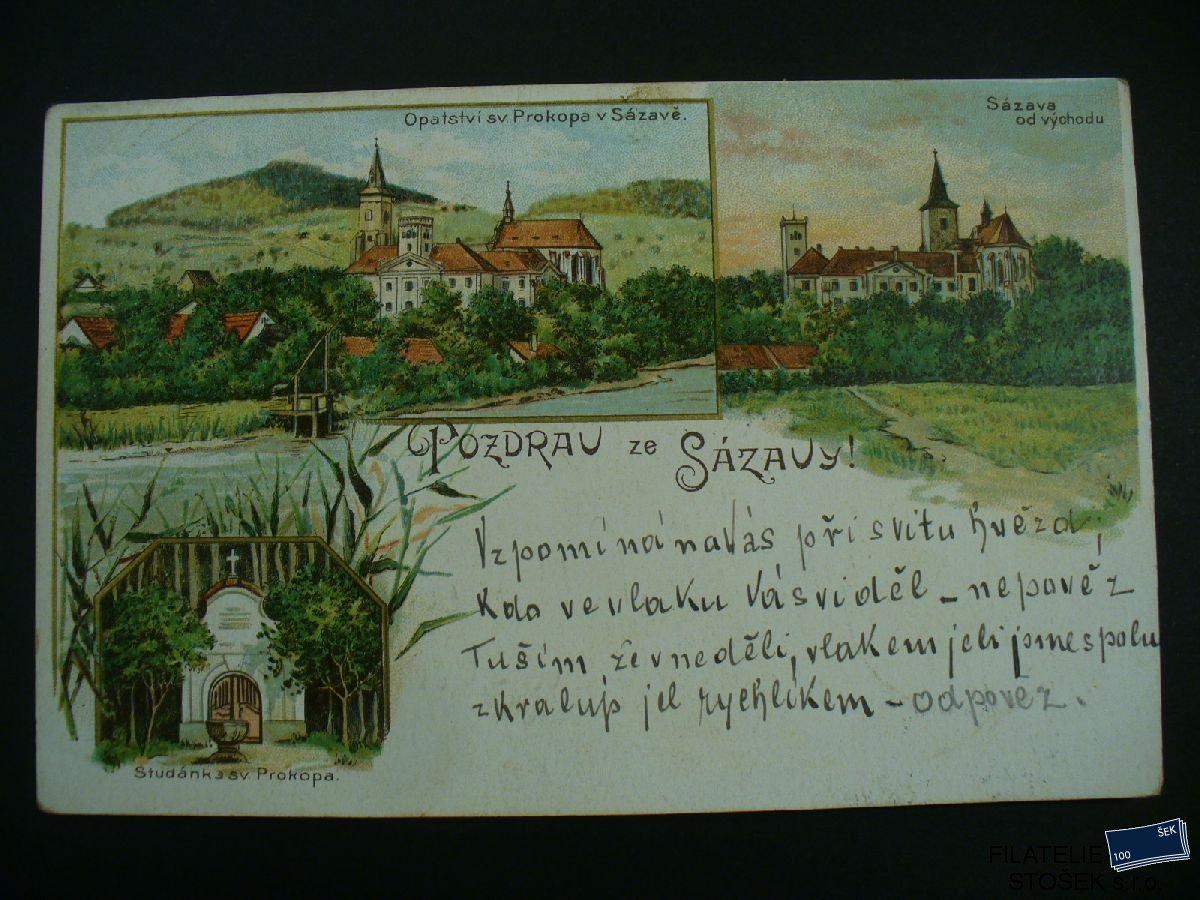 Opatství sv. Prokopa v Sázavě.
Sázava
od východu
Pozdrav ze Sázavy!
Vzpomíná na Vás při svitu hvězd,
Kdo ve vlaku Vás viděl – nepověz
Tuším že v neděli, vlakem jeli jsme spolu
z kralup jel rychlíkem – odpověz.
Studánka sv. Prokopa.
ŠEK
100
FILATELIE
STOŠEK s.r.o.